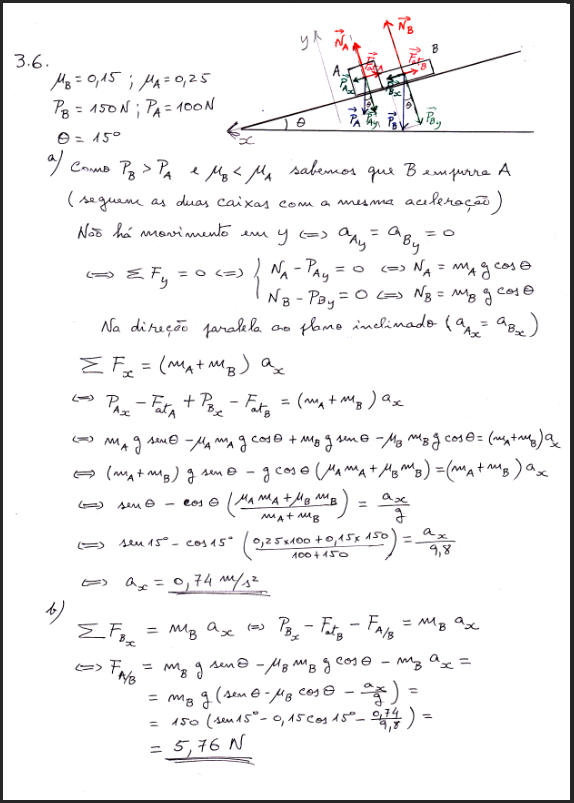 3.6.
μB = 0,15 ; μA = 0,25
PB = 150N ; PA = 100N
θ = 15°
y N⃗A N⃗B
A B
P⃗Ax P⃗Bx
P⃗A P⃗Ay P⃗B P⃗By
θ
x
a) Como PB > PA e μB < μA sabemos que B empurra A
(seguem as duas caixas com a mesma aceleração)
Não há movimento em y ⇔ aAy = aBy = 0
⇔ ΣFy = 0 ⇔ { NA - PAy = 0 ⇔ NA = mA g cos θ
NB - PBy = 0 ⇔ NB = mB g cos θ
Na direção paralela ao plano inclinado (aAx = aBx)
ΣFx = (mA + mB) ax
⇔ PAx - FatA + PBx - FatB = (mA + mB) ax
⇔ mA g senθ - μA mA g cos θ + mB g senθ - μB mB g cos θ = (mA + mB) ax
⇔ (mA + mB) g senθ - g cos θ (μA mA + μB mB) = (mA + mB) ax
⇔ senθ - cos θ ((μA mA + μB mB)/(mA + mB)) = ax/g
⇔ sen 15° - cos 15° ((0,25 x 100 + 0,15 x 150)/(100 + 150)) = ax/9,8
⇔ ax = 0,74 m/s²
b)
ΣFBx = mB ax ⇔ PBx - FatB - FA/B = mB ax
⇔ FA/B = mB g senθ - μB mB g cos θ - mB ax =
= mB g (senθ - μB cos θ - ax/g) =
= 150 (sen 15° - 0,15 cos 15° - 0,74/9,8) =
= 5,76 N